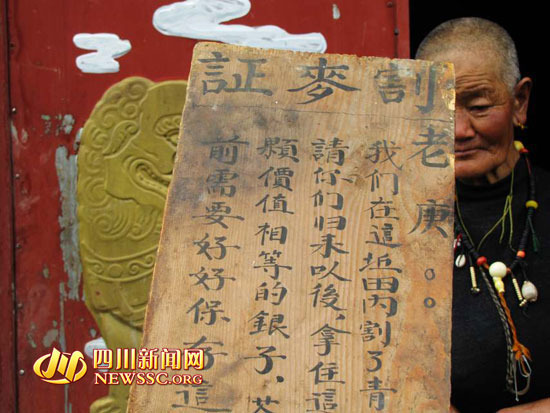 割麥証
老庚：
我们在這坵田内割了青
請你们归来以後，拿住這
顆價值相等的銀子，
前需要好好保存這
四川新闻网
NEWSSC.ORG